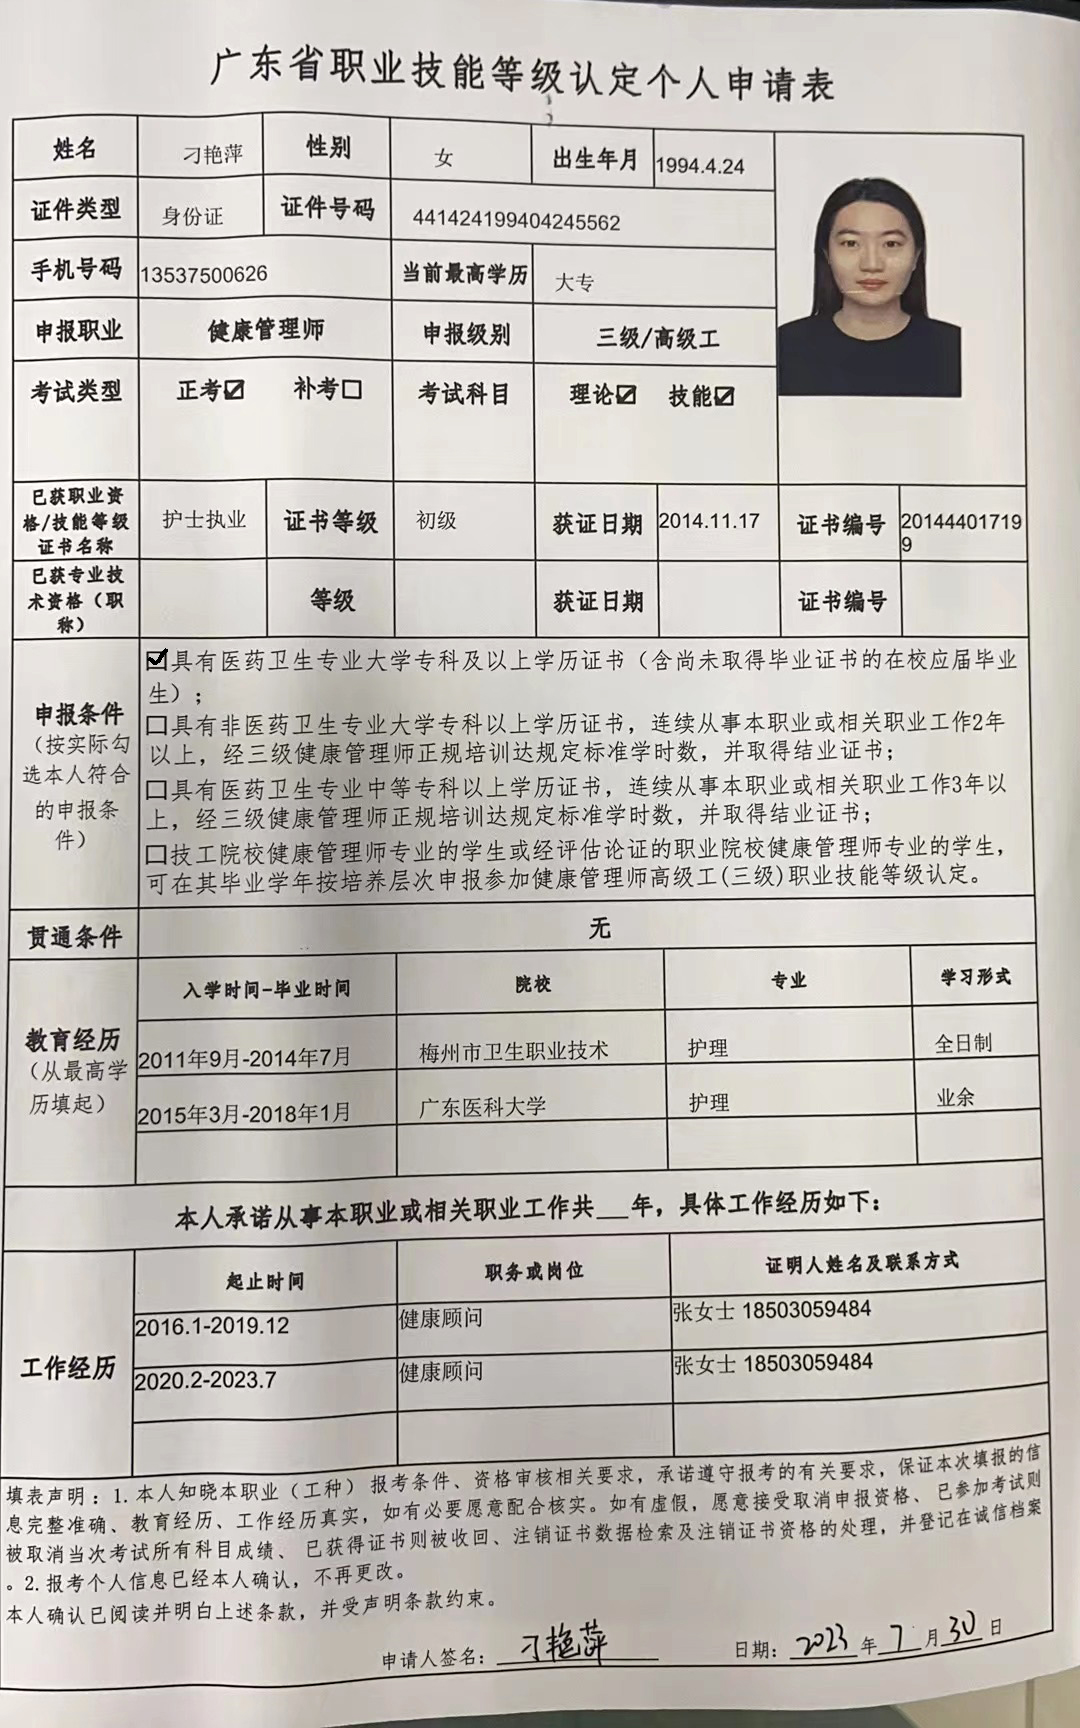 广东省职业技能等级认定个人申请表
姓名 刁艳萍 性别 女 出生年月 1994.4.24
证件类型 身份证 证件号码 441424199404245562
手机号码 13537500626 当前最高学历 大专
申报职业 健康管理师 申报级别 三级/高级工
考试类型 正考☑ 补考☐ 考试科目 理论☑ 技能☑
已获职业资
格/技能等级
证书名称 护士执业 证书等级 初级 获证日期 2014.11.17 证书编号 20144401719
9
已获专业技
术资格（职
称） 等级 获证日期 证书编号
申报条件
（按实际勾
选本人符合
的申报条
件）
☑具有医药卫生专业大学专科及以上学历证书（含尚未取得毕业证书的在校应届毕业
生）；
☐具有非医药卫生专业大学专科以上学历证书，连续从事本职业或相关职业工作2年
以上，经三级健康管理师正规培训达规定标准学时数，并取得结业证书；
☐具有医药卫生专业中等专科以上学历证书，连续从事本职业或相关职业工作3年以
上，经三级健康管理师正规培训达规定标准学时数，并取得结业证书；
☐技工院校健康管理师专业的学生或经评估论证的职业院校健康管理师专业的学生，
可在其毕业学年按培养层次申报参加健康管理师高级工(三级)职业技能等级认定。
贯通条件 无
教育经历
（从最高学
历填起）
入学时间-毕业时间 院校 专业 学习形式
2011年9月-2014年7月 梅州市卫生职业技术 护理 全日制
2015年3月-2018年1月 广东医科大学 护理 业余
本人承诺从事本职业或相关职业工作共__年，具体工作经历如下：
工作经历
起止时间 职务或岗位 证明人姓名及联系方式
2016.1-2019.12 健康顾问 张女士 18503059484
2020.2-2023.7 健康顾问 张女士 18503059484
填表声明：1.本人知晓本职业（工种）报考条件、资格审核相关要求，承诺遵守报考的有关要求，保证本次填报的信
息完整准确、教育经历、工作经历真实，如有必要愿意配合核实。如有虚假，愿意接受取消申报资格、已参加考试则
被取消当次考试所有科目成绩、已获得证书则被收回、注销证书数据检索及注销证书资格的处理，并登记在诚信档案
。2.报考个人信息已经本人确认，不再更改。
本人确认已阅读并明白上述条款，并受声明条款约束。
申请人签名：刁艳萍 日期：2023年7月30日